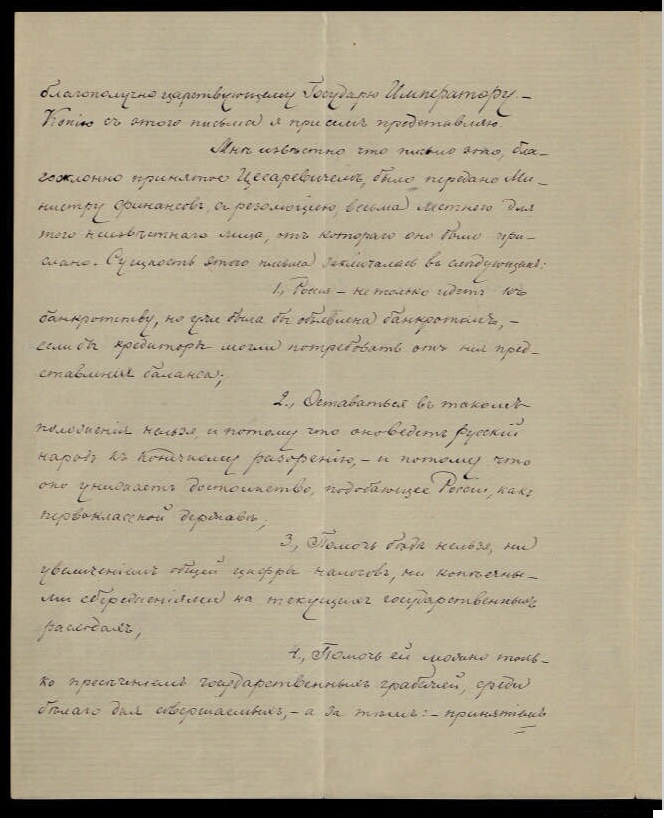 благополучно царствующему Государю Императору. –
Копію съ этого письма я при семъ представляю.
Мнѣ извѣстно что письмо это, бла-
госклонно принятое Цесаревичемъ, было передано Ми-
нистру финансовъ, съ резолюціею, весьма лестною для
того неизвѣстнаго лица, отъ котораго оно было при-
слано. Сущность этого письма заключалась въ слѣдующемъ:
1., Россія – не только идетъ къ
банкротству, но уже была бы объявлена банкротомъ, –
если бы кредиторы могли потребовать отъ нея пред-
ставленія баланса;
2., Оставаться въ такомъ
положеніи нельзя, и потому что оно ведетъ русскій
народъ къ конечному разоренію, – и потому что
оно унижаетъ достоинство, подобающее Россіи, какъ
первоклассной державѣ;
3., Помочь бѣдѣ нельзя, ни
увеличеніемъ общей цифры налоговъ, ни копѣечны-
ми сбереженіями на текущихъ государственныхъ
расходахъ;
4., Помочь ей можно толь-
ко пресѣченіемъ государственныхъ грабежей, среди
бѣлаго дня совершаемыхъ, – а за тѣмъ: – принятіемъ